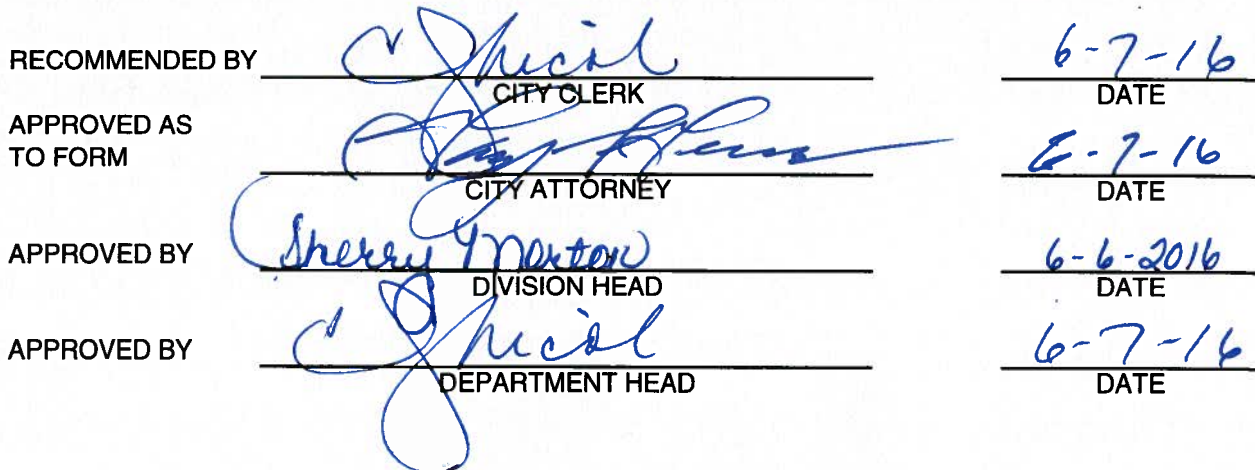 RECOMMENDED BY 6-7-16
CITY CLERK DATE
APPROVED AS
TO FORM 6-7-16
CITY ATTORNEY DATE
APPROVED BY Sherry Morton 6-6-2016
DIVISION HEAD DATE
APPROVED BY 6-7-16
DEPARTMENT HEAD DATE